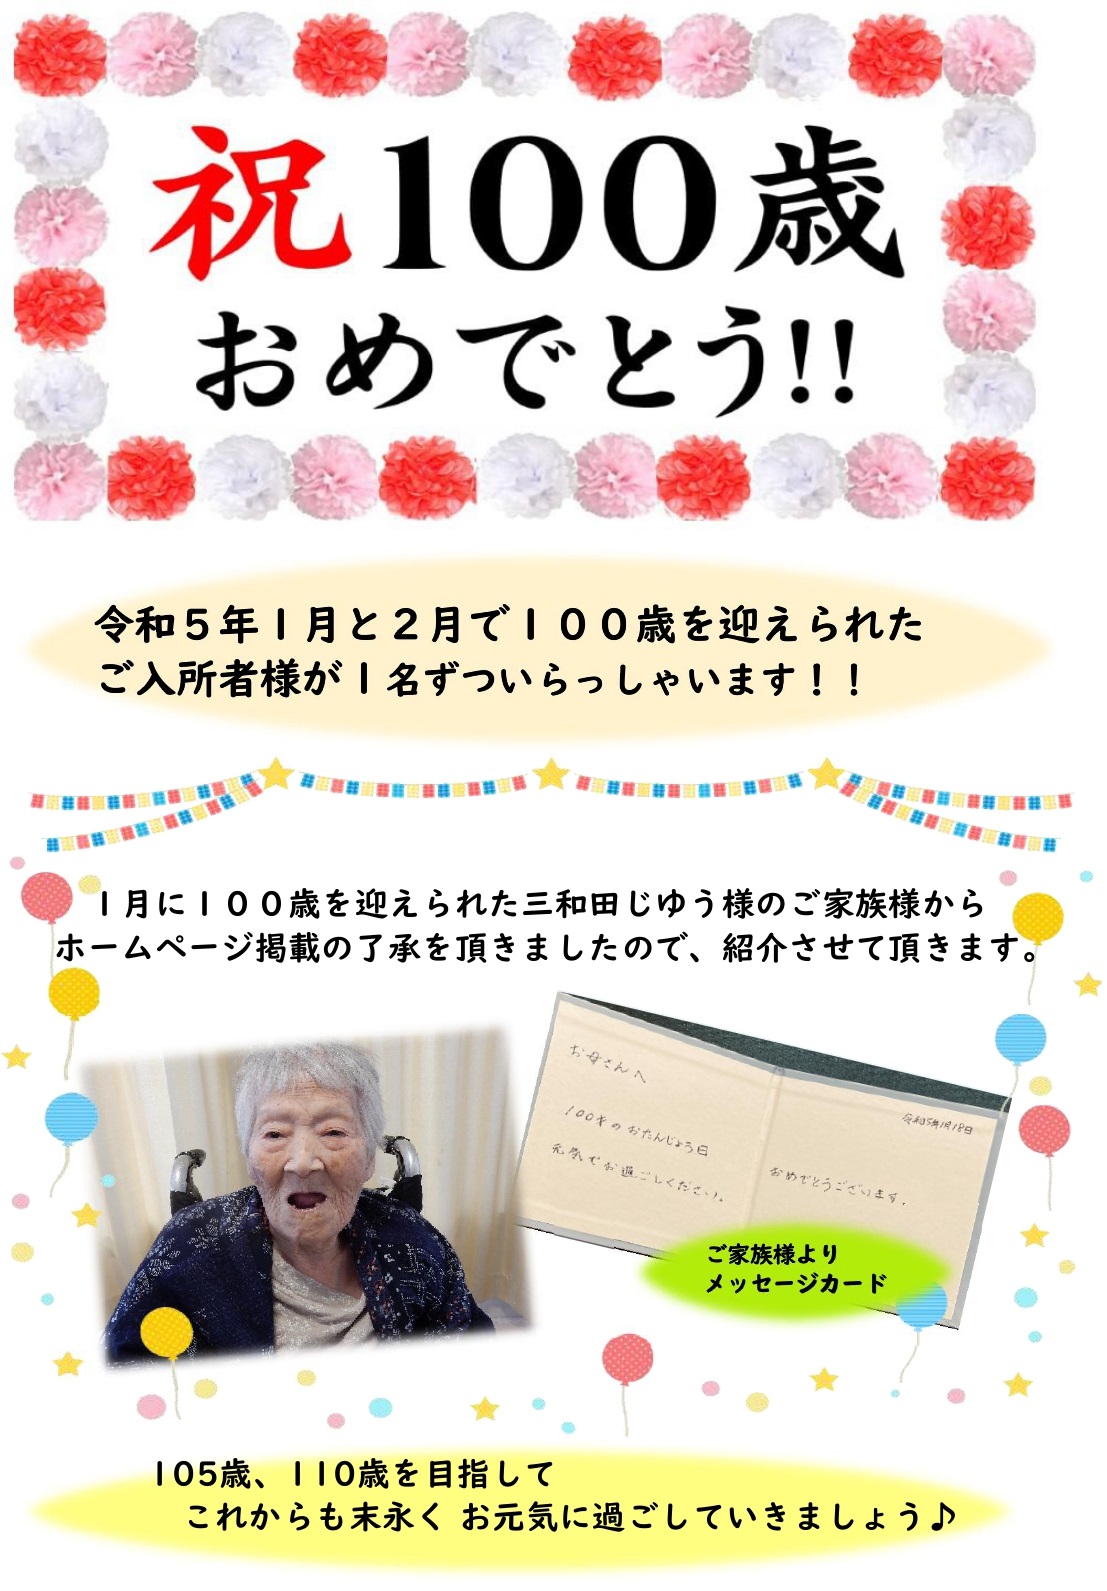 祝100歳
おめでとう!!
令和5年1月と2月で100歳を迎えられた
ご入所者様が1名ずついらっしゃいます！！
1月に100歳を迎えられた三和田じゆう様のご家族様から
ホームページ掲載の了承を頂きましたので、紹介させて頂きます。
お母さんへ
100才のおたんじょう日
元気でお過ごしください。
令和5年1月18日
おめでとうございます。
ご家族様より
メッセージカード
105歳、110歳を目指して
これからも末永く お元気に過ごしていきましょう♪